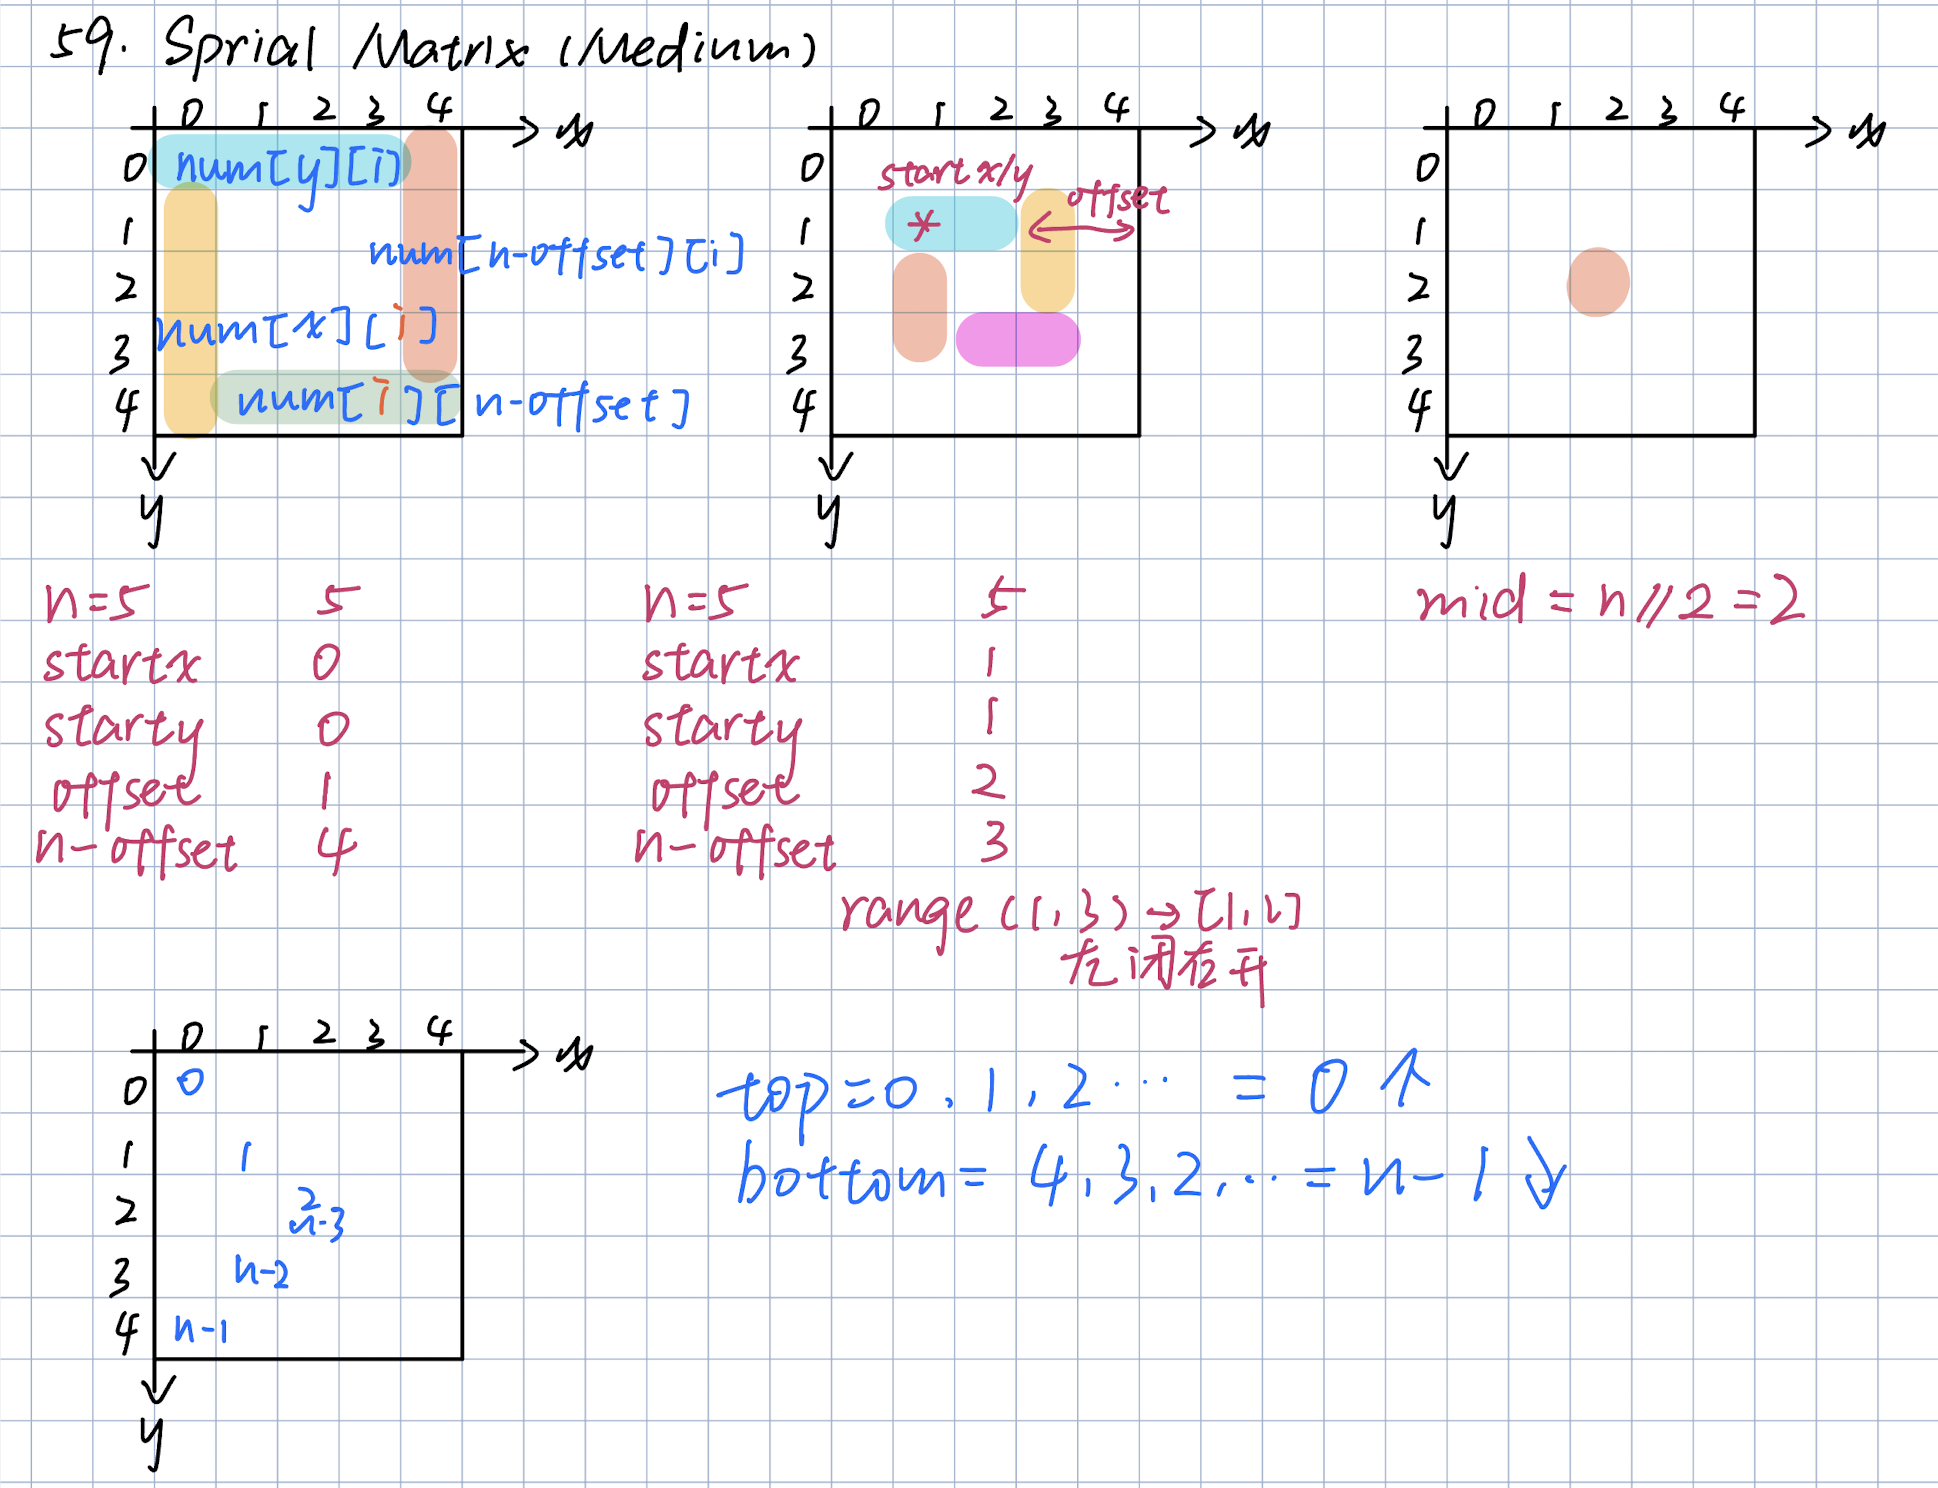 59. Sprial Matrix (Medium)
0 1 2 3 4 x
0 num[y][i]
1
num[n-offset][i]
2
num[x][i]
3
4 num[i][n-offset]
y
0 1 2 3 4 x
0 startx/y
offset
1 *
2
3
4
y
0 1 2 3 4 x
0
1
2
3
4
y
n=5 5
startx 0
starty 0
offset 1
n-offset 4
n=5 5
startx 1
starty 1
offset 2
n-offset 3
range (1,3) → [1,2]
左闭右开
mid = n//2 = 2
0 1 2 3 4 x
0 0
1 1
2 2
n-3
3 n-2
4 n-1
y
top=0,1,2... = 0 ↑
bottom= 4,3,2,... = n-1 ↓